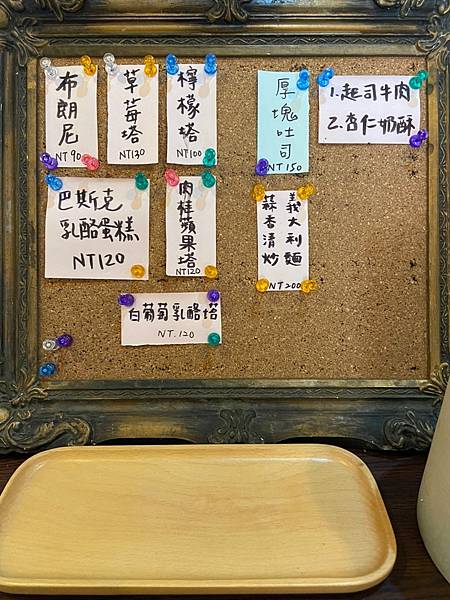 布朗尼
NT90
草莓塔
NT130
檸檬塔
NT100
厚塊吐司
NT150
1.起司牛肉
2.杏仁奶酥
巴斯克
乳酪蛋糕
NT120
肉桂蘋果塔
NT120
義大利麵
蒜香清炒
NT200
白葡萄乳酪塔
NT.120